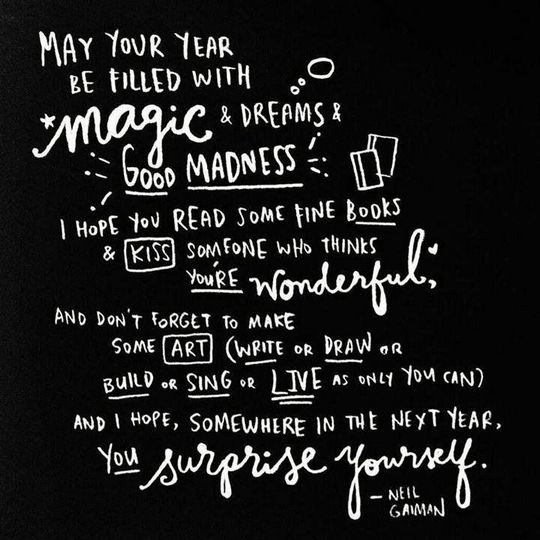 MAY YOUR YEAR
BE FILLED WITH
magic & DREAMS &
GOOD MADNESS
I HOPE YOU READ SOME FINE BOOKS
& KISS SOMEONE WHO THINKS
YOU'RE wonderful,
AND DON'T FORGET TO MAKE
SOME ART (WRITE OR DRAW OR
BUILD OR SING OR LIVE AS ONLY YOU CAN)
AND I HOPE, SOMEWHERE IN THE NEXT YEAR,
YOU surprise yourself.
- NEIL
GAIMAN